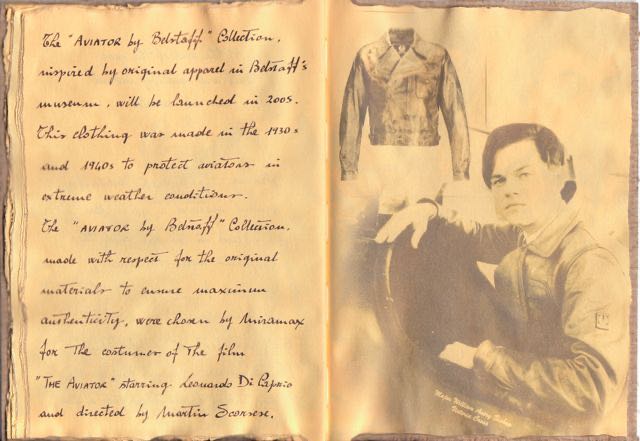 The "AVIATOR by Belstaff" Collection,
inspired by original apparel in Belstaff's
museum, will be launched in 2005.
This clothing was made in the 1930s
and 1940s to protect aviators in
extreme weather conditions.
The "AVIATOR by Belstaff" Collection,
made with respect for the original
materials to ensure maximum
authenticity, were chosen by Miramax
for The costumer of The film
"THE AVIATOR" starring Leonardo Di Caprio
and directed by Martin Scorsese.
Major William Avery Bishop
Victoria Cross